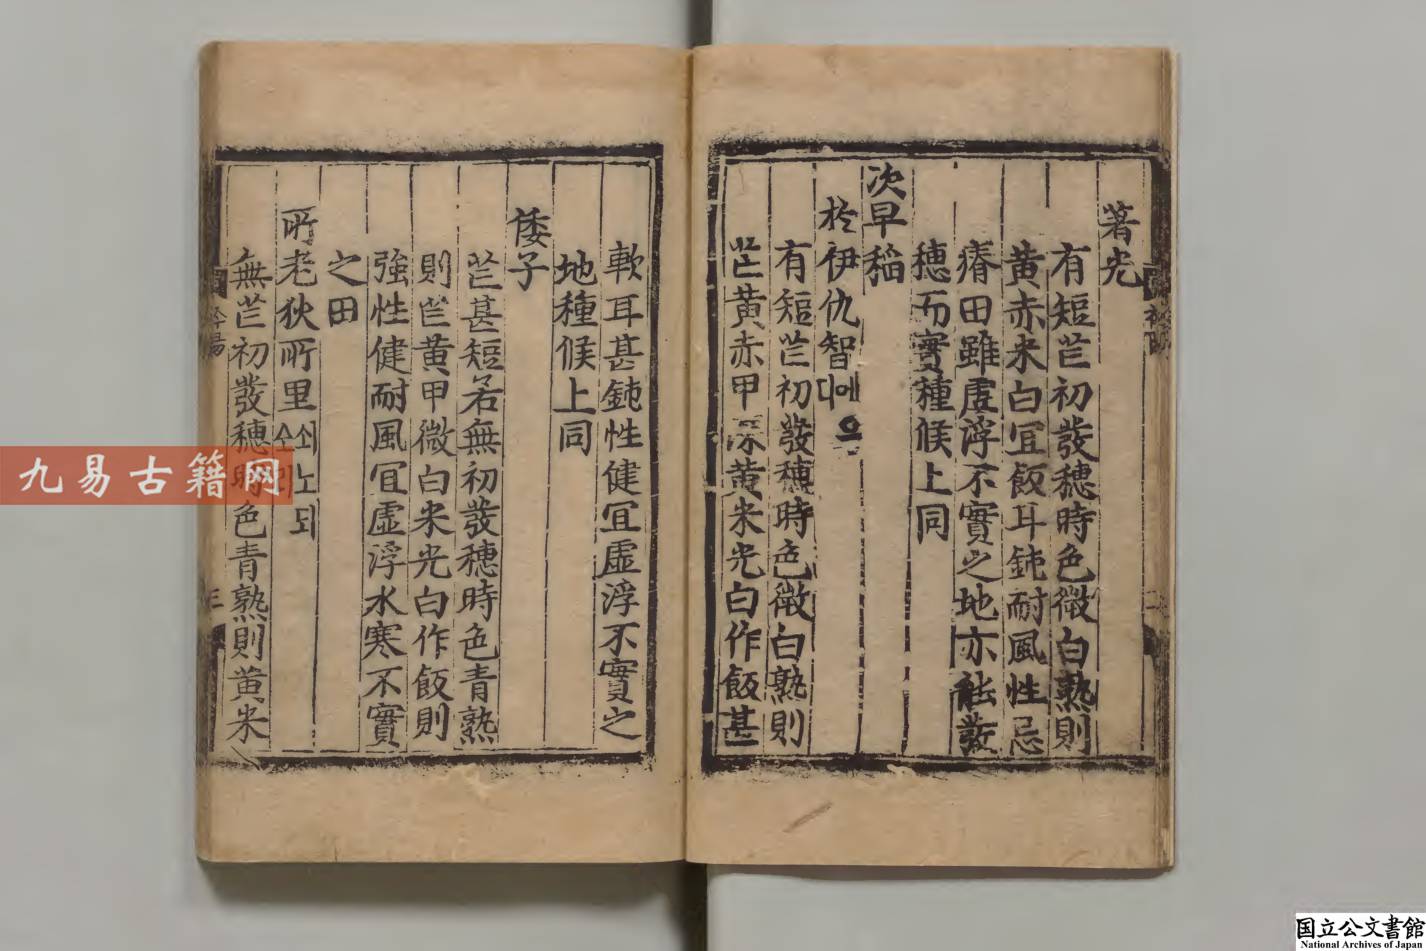 著光
有短芒初發穗時色微白熟則
黃赤米白冝飯耳鈍耐風性忌
瘠田雖虛浮不實之地亦能發
穗而實種候上同
次早稻
於伊仇智
有短芒初發穗時色微白熟則
芒黃赤甲深黃米光白作飯甚
軟耳甚鈍性健冝虛浮不實之
地種候上同
倭子
芒甚短若無初發穗時色青熟
則芒黃甲微白米光白作飯則
強性健耐風冝虛浮水寒不實
之田
所老狄所里쇠노되
無芒初發穗時色青熟則黃米
衿陽
三
九易古籍网
国立公文書館
National Archives of Japan